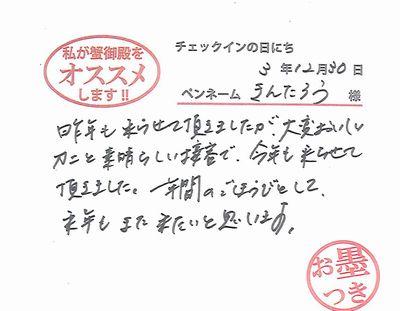 私が蟹御殿を
オススメ
します!!
チェックインの日にち
3年12月30日
ペンネーム きんたろう 様
昨年も来らせて頂きましたが、大変おいしい
カニと素晴らしい接客で、今年も来らせて
頂きました。一年間のごほうびとして、
来年もまた来たいと思います。
お墨
つき